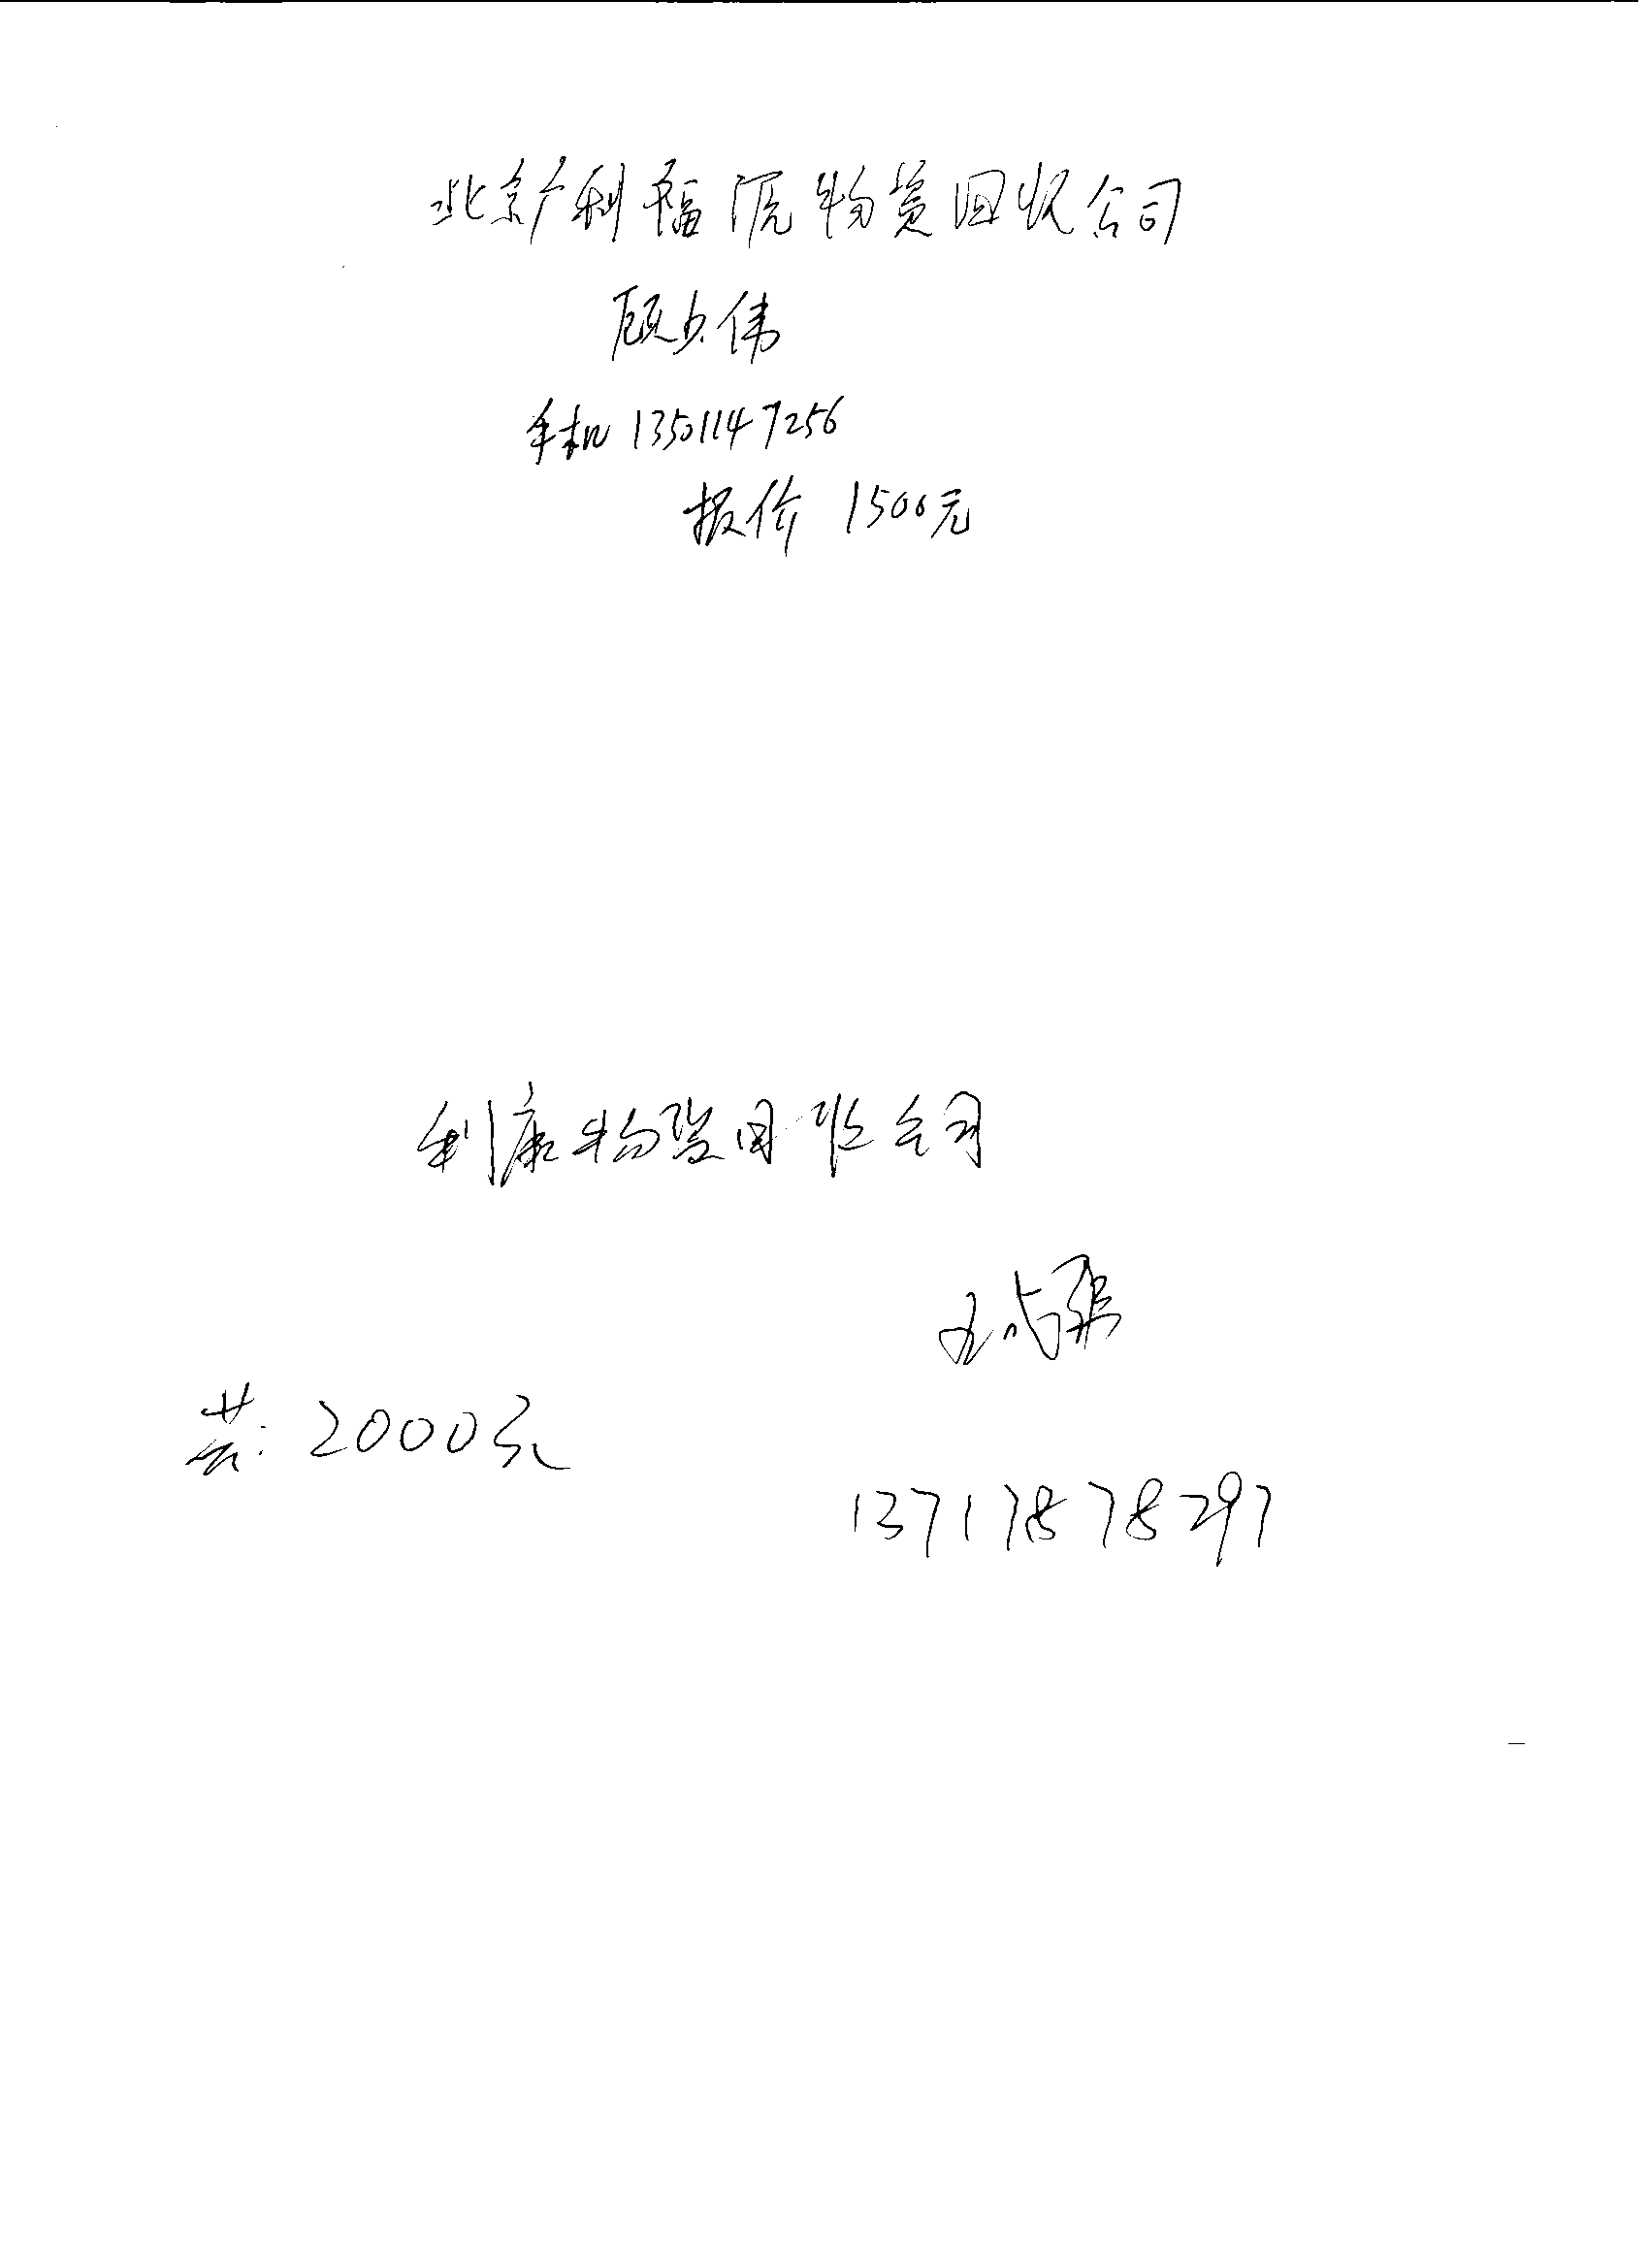 北京广利福源物资回收公司
顾占伟
手机 13501147256
报价 1500元
利康物资回收公司
共: 2000元
13717878297